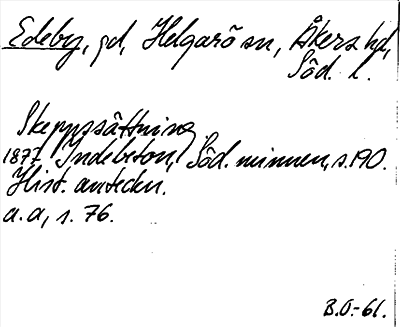 Edeby, gd, Helgarö sn, Åkers hd,
Söd. l.
Skeppssättning
1877 Indebetou, Söd. minnen, s. 190.
Hist. anteckn.
a. a, s. 76.
B.O.-61.